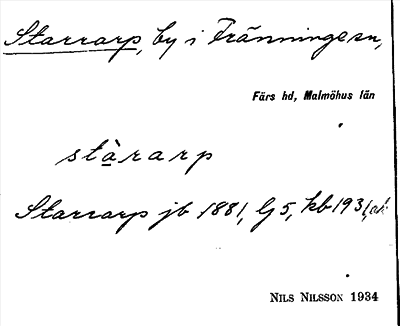 Starrarp, by i Tränninge sn,
Färs hd, Malmöhus län
stàrarp
Starrarp jb 1881, Gj 5, kb 1931, ak
NILS NILSSON 1934